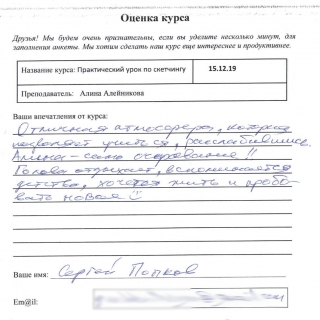 Оценка курса
Друзья! Мы будем очень признательны, если вы уделите несколько минут, для
заполнения анкеты. Мы хотим сделать наш курс еще интереснее и продуктивнее.
Название курса: Практический урок по скетчингу 15.12.19
Преподаватель: Алина Алейникова
Ваши впечатления от курса:
Отличная атмосфера, которая
позволяет учиться, расслабившись.
Алина - само очарование!!
Голова отдыхает, вспоминается
детство, хочется жить и пробо-
вать новое
Ваше имя: Сергей Попков
Em@il: